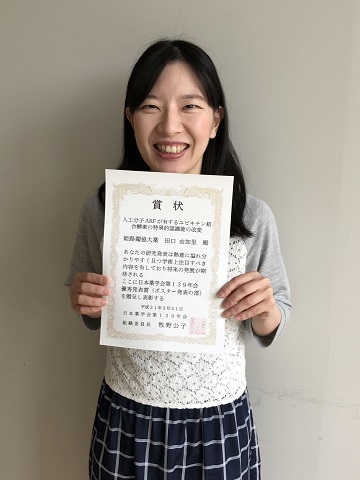 賞状
人工分子ARFが有するユビキチン結
合酵素の特異的認識能の改変
姫路獨協大薬 田口 由加里 殿
あなたの研究発表は熱意に溢れ分
かりやすく且つ学術上注目すべき
内容を有しており将来の発展が期
待される
ここに日本薬学会第139年会
優秀発表賞(ポスター発表の部)
を贈呈し表彰する
平成31年3月31日
日本薬学会第139年会
組織委員長 牧野公子